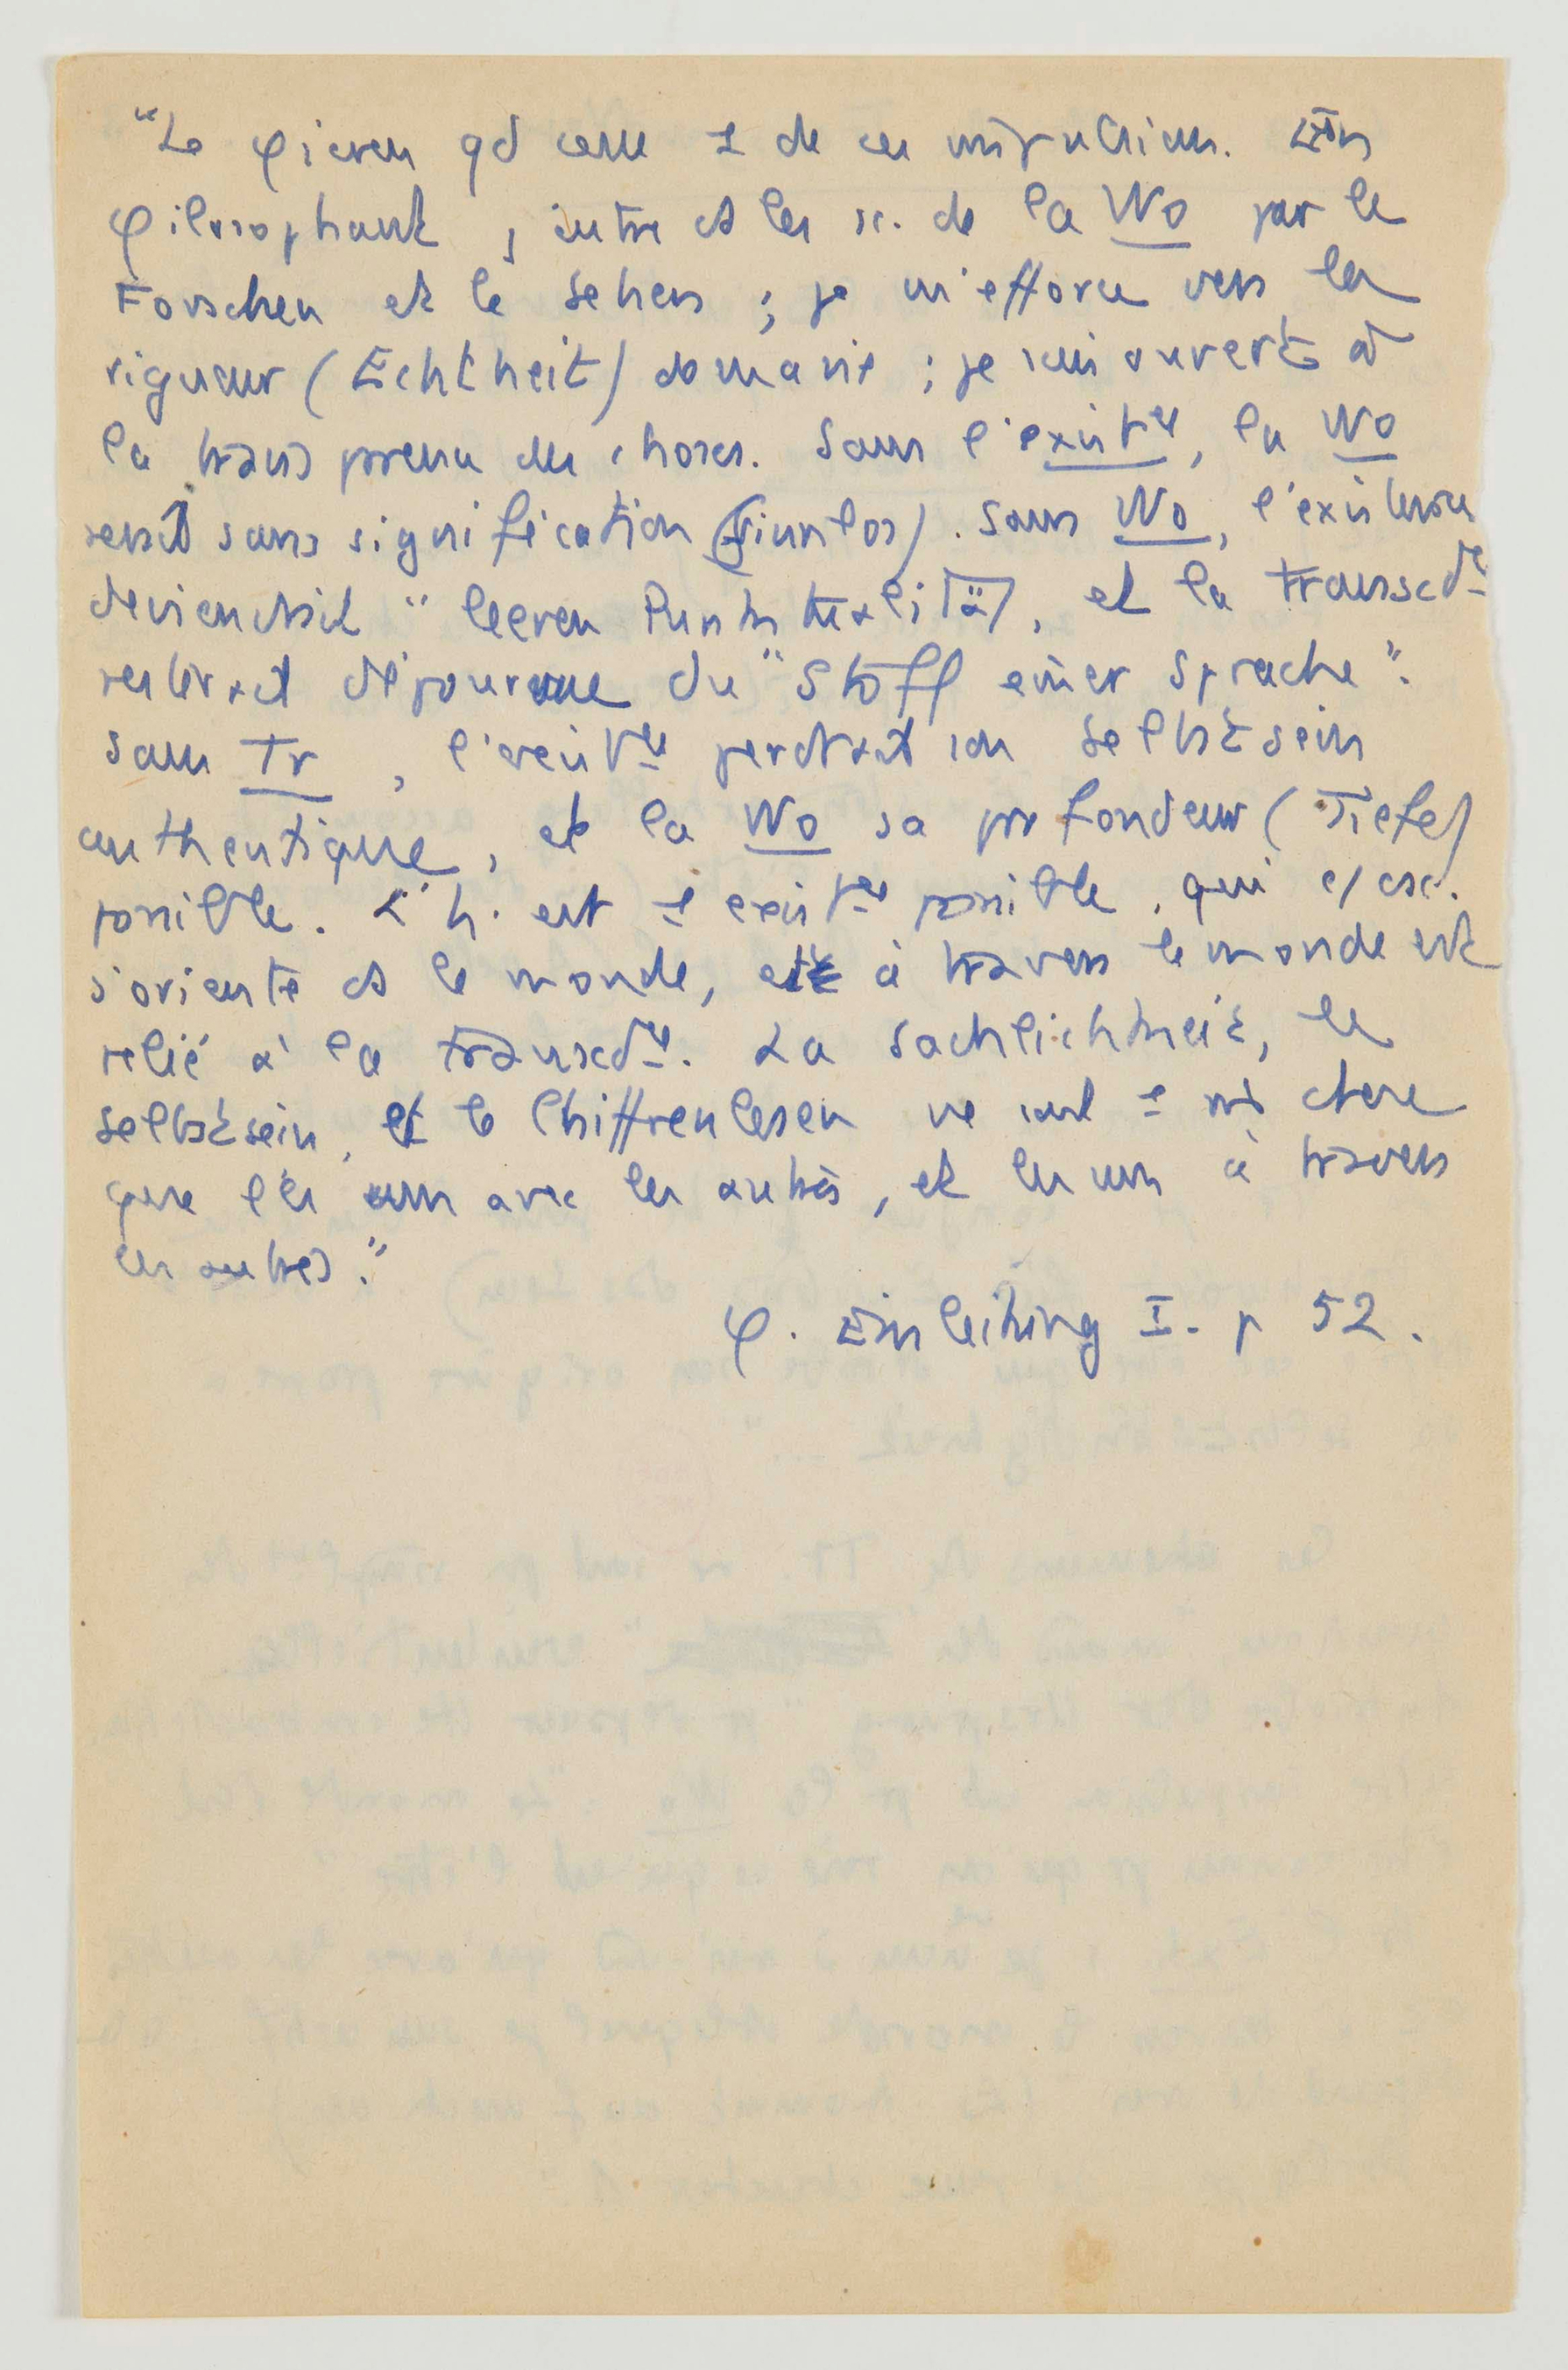 "Le φieren qd cesse 1 de ces impulsions. En
φilosophant, j'entre ds les sc. de la Wo par le
Forschen et le Sehen ; je m'efforce vers la
rigueur (Echtheit) ; je suis ouvert à
la des choses. Sans l'existce, la Wo
serait sans signification (sinnlos). Sans Wo, l'existence
deviendrait "leeren Punktualität", et la transcdce
resterait dépourvue du "Stoff einer Sprache".
Sans Tr, l'existce perdrait son Selbstsein
authentique, et la Wo sa profondeur (Tiefe)
possible. L'h. est 1 existce possible, qui
s'oriente ds le monde, et à travers le monde est
relié à la transcdce. La Sachlichkeit, le
Selbstsein, et le Chiffrenlesen ne sont 1 chose
que les uns avec les autres, et les uns à travers
les autres."
φ. Einleitung I. p 52.